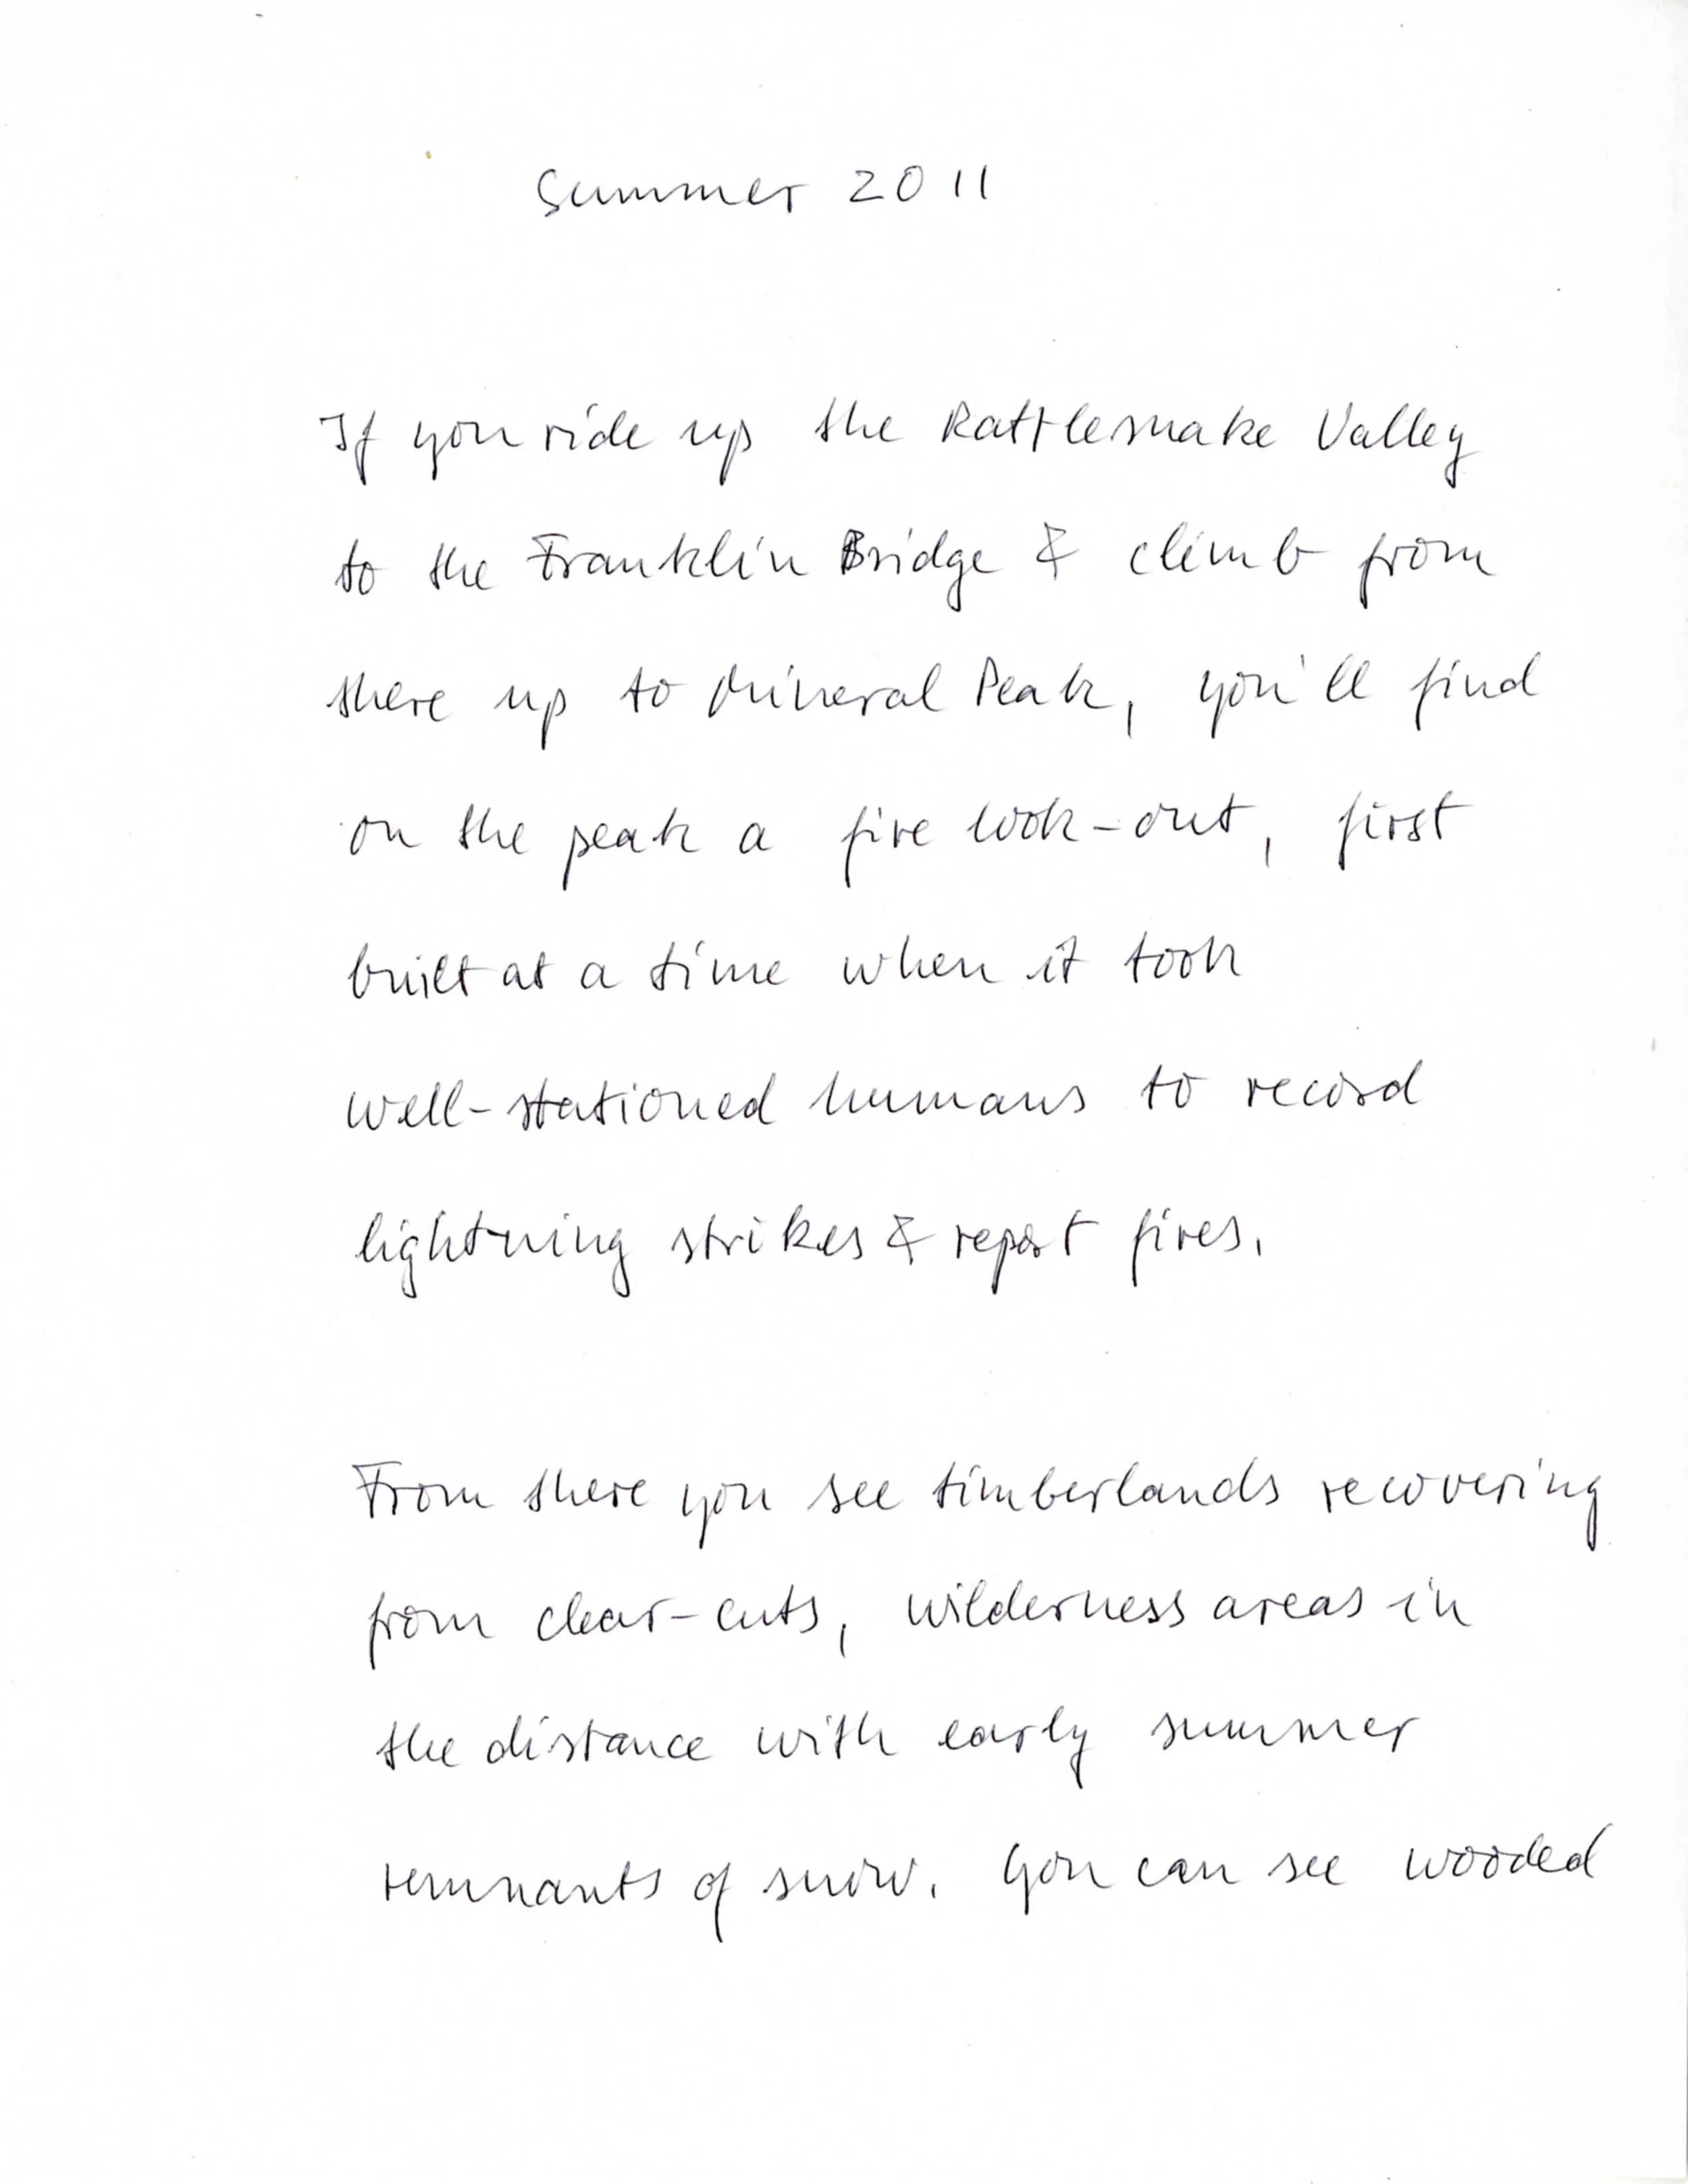 Summer 2011
If you ride up the Rattlesnake Valley
to the Franklin Bridge & climb from
there up to Mineral Peak, you'll find
on the peak a fire look-out, first
built at a time when it took
well-stationed humans to record
lightning strikes & report fires.
From there you see timberlands recovering
from clear-cuts, wilderness areas in
the distance with early summer
remnants of snow. You can see wooded